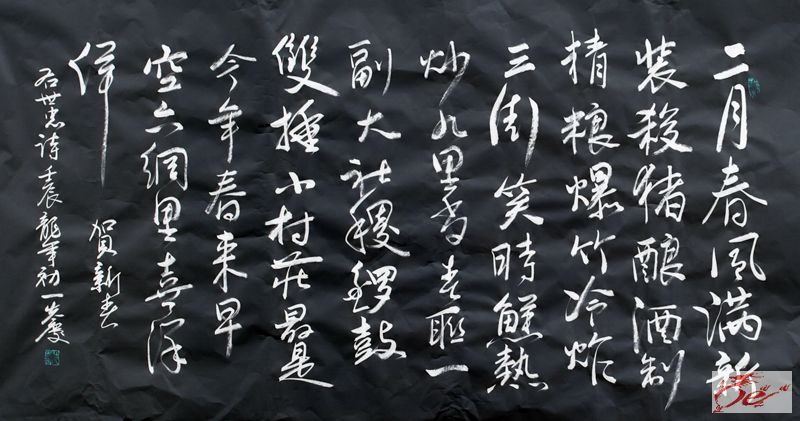 二月春風满新
装殺猪酿酒制
精粮爆竹冷炸
三街笑時鮮熱
炒九里香春联一
副大社稷锣鼓
雙捶小村莊最是
今年春来早
空六網里喜洋
洋 賀新春
石世忠诗壬辰龍年初一